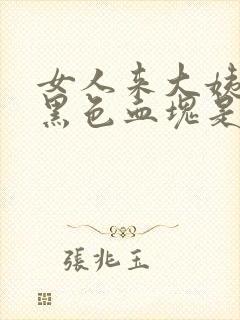 女人来大姨
黑色血塊是
張兆玉